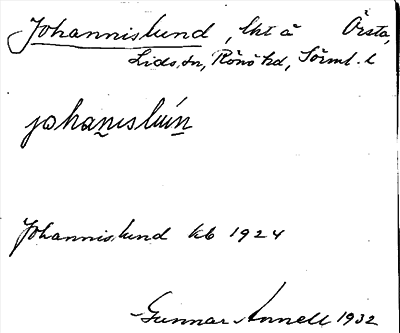 Johannislund, lht å Örsta,
Lids, sn, Rönö hd, Sörml. l
johan̲isluín̲
Johannislund kb 1924
Gunnar Annell 1932